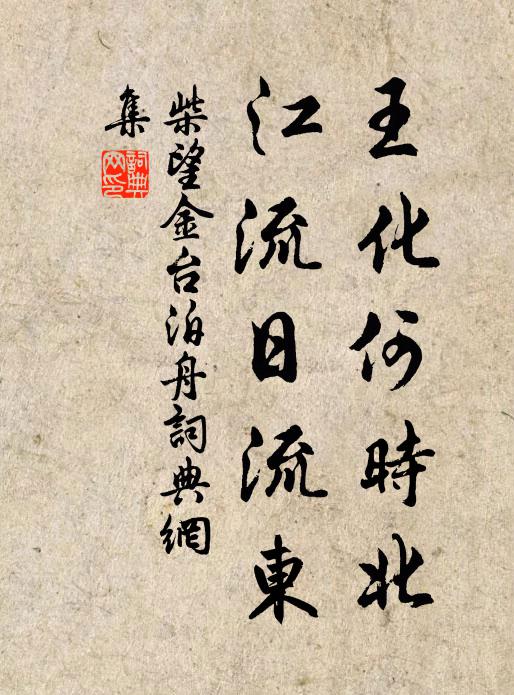 王化何時北
江流日流東
柴望金台泊舟詞典網
集
詞典
网印